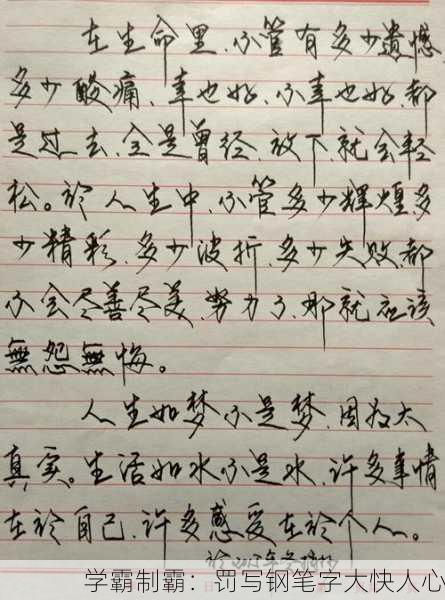 在生命里,不管有多少遗憾,
多少酸痛、幸也好、不幸也好,都
是过去,全是曾经,放下,就会轻
松。於人生中,不管多少辉煌,多
少精彩,多少波折,多少失败,都
不会尽善尽美,努力了,那就应该
無怨無悔。
人生如梦不是梦,因为太
真实。生活如水不是水,许多事情
在於自己,许多感受在於个人。
学霸制霸：罚写钢笔字大快人心